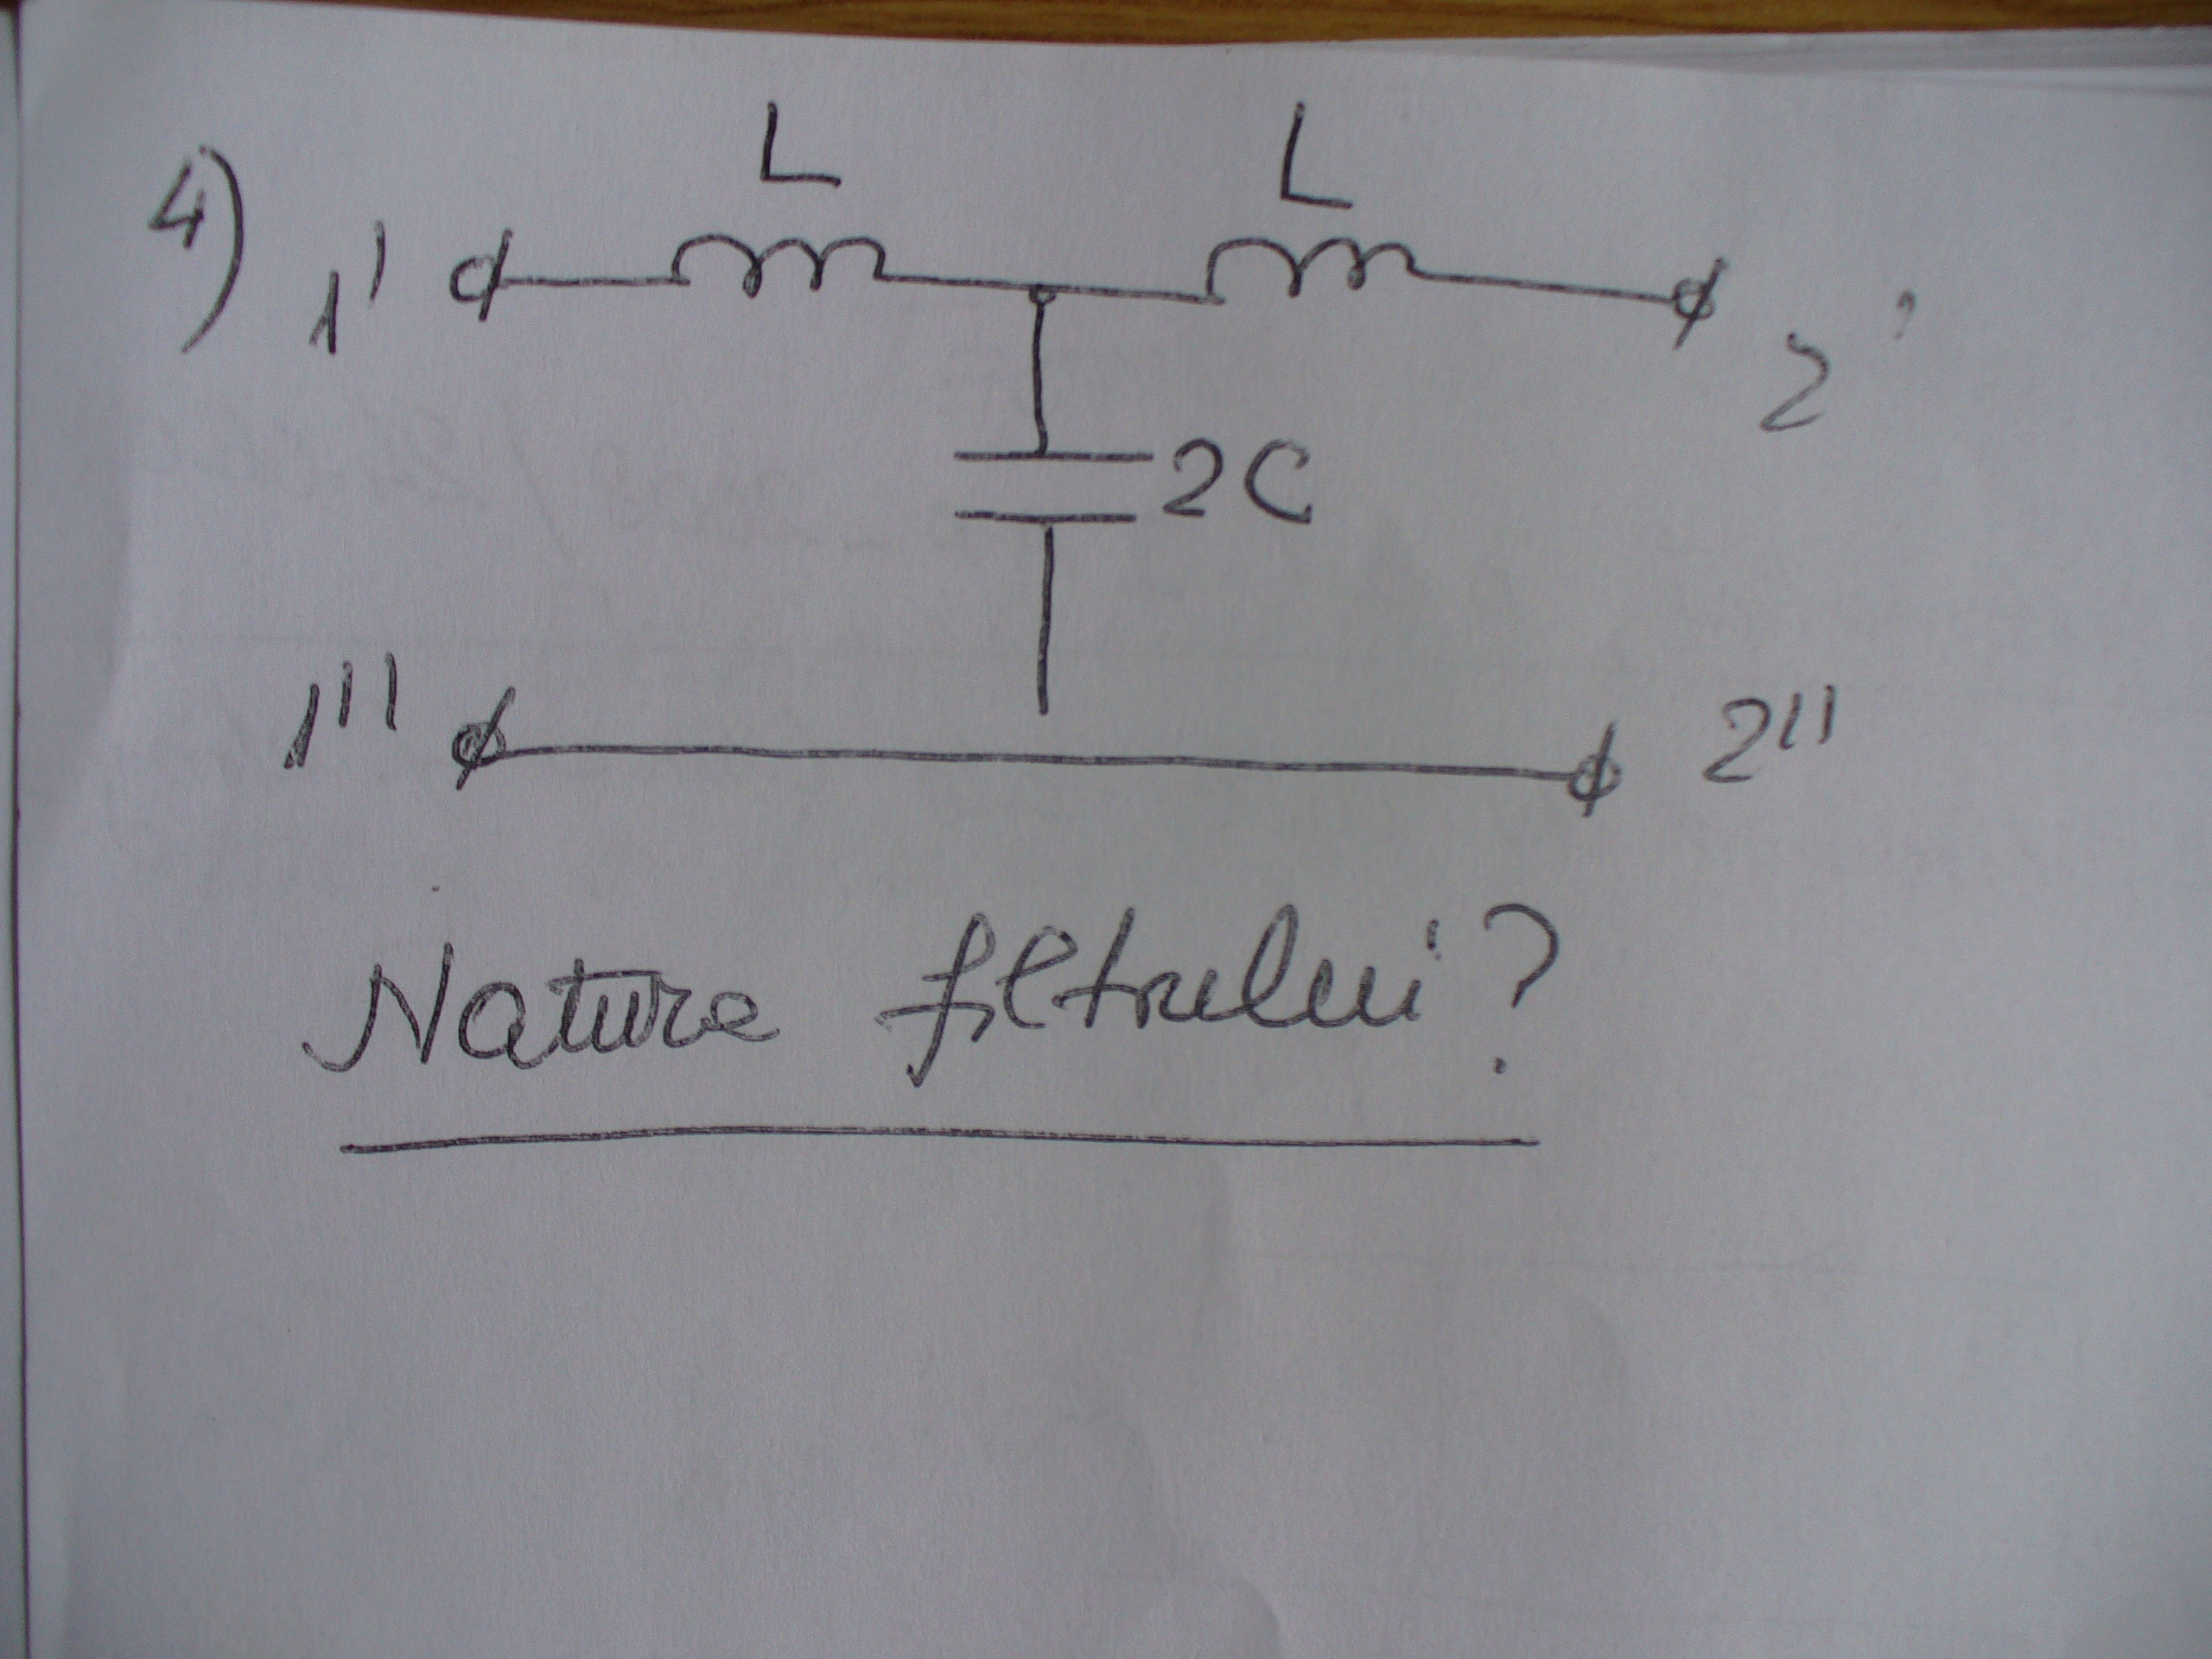 4) L L
1' 2'
2C
1'' 2''
Natura filtrului?